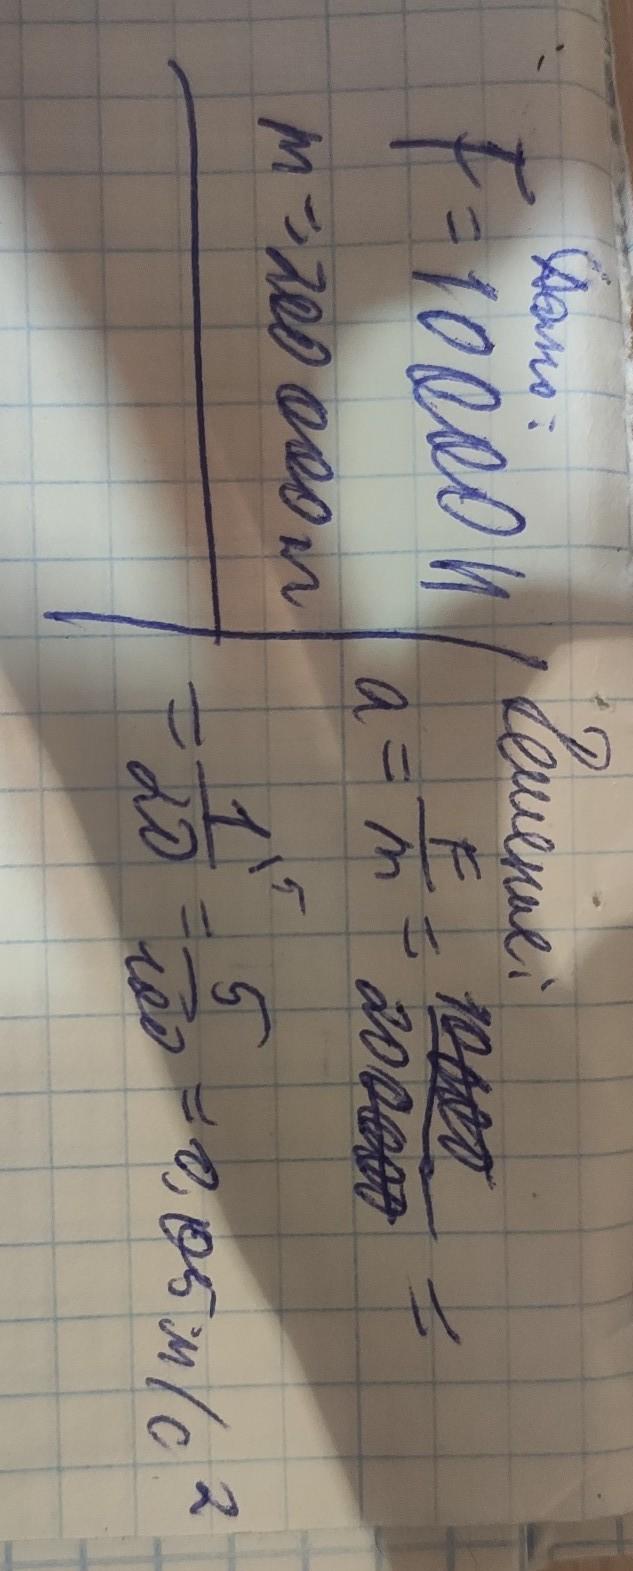 Дано:
F = 10000 Н
m = 200 000 кг
Решение:
a = F/m = 10000/200000 =
= 1\5/20 = 5/100 = 0,05 м/с²